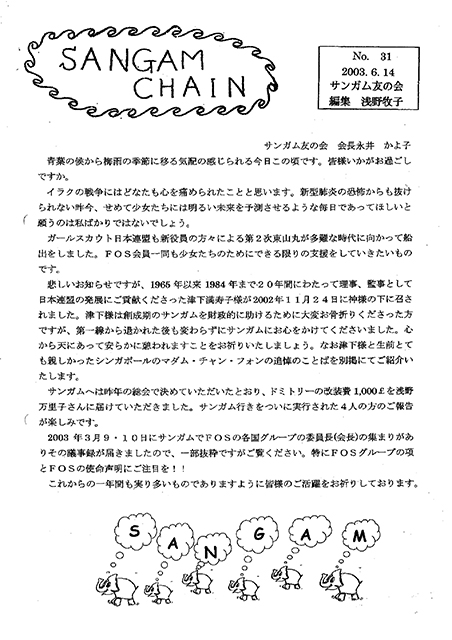 SANGAM
CHAIN
No. 31
2003. 6. 14
サンガム友の会
編集 浅野牧子
サンガム友の会 会長永井 かよ子
青葉の候から梅雨の季節に移る気配の感じられる今日この頃です。皆様いかがお過ごし
ですか。
イラクの戦争にはどなたも心を痛められたことと思います。新型肺炎の恐怖からも抜け
られない昨今、せめて少女たちには明るい未来を予測させるような毎日であってほしいと
願うのは私ばかりではないでしょう。
ガールスカウト日本連盟も新役員の方々による第2次東山丸が多難な時代に向かって船
出をしました。FOS会員一同も少女たちのためにできる限りの支援をしていきたいもの
です。
悲しいお知らせですが、1965 年以来 1984 年まで20年間にわたって理事、監事として
日本連盟の発展にご貢献くださった津下満寿子様が2002年11月24日に神様の下に召さ
れました。津下様は創成期のサンガムを財政的に助けるために大変お骨折りくださった方
ですが、第一線から退かれた後も変わらずにサンガムにお心をかけてくださいました。心
から天にあって安らかに憩われますことをお祈りいたしましょう。なお津下様と生前とて
も親しかったシンガポールのマダム・チャン・フォンの追悼のことばを別掲にてご紹介い
たします。
サンガムへは昨年の総会で決めていただいたとおり、ドミトリーの改装費 1,000£を浅野
万里子さんに届けていただきました。サンガム行きをついに実行された4人の方のご報告
が楽しみです。
2003 年3月9・10日にサンガムでFOSの各国グループの委員長(会長)の集まりがあ
りその議事録が届きましたので、一部抜粋ですがご覧ください。特にFOSグループの項
とFOSの使命声明にご注目を!!
これからの一年間も実り多いものでありますように皆様のご活躍をお祈りしております。
S A N G A M